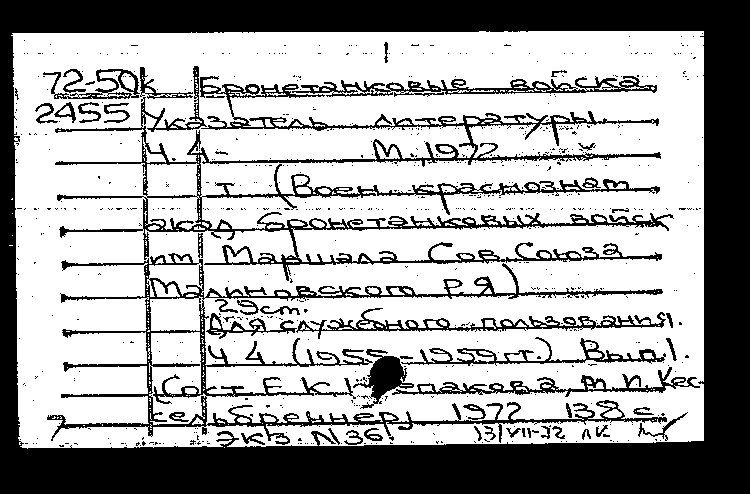 72-50к Бронетанковые войска
2455 Указатель литературы.
Ч. 4- М., 1972
т. (Воен. краснознам
акад бронетанковых войск
им Маршала Сов. Союза
Малиновского Р Я)
29 cm.
Для служебного пользования.
Ч 4. (1955-1959 гг.) Вып. 1.
Сост Е. К. М. П. Кес-
сельбреннер, 1972 138 с.
Экз. N 36.
13/VII-72